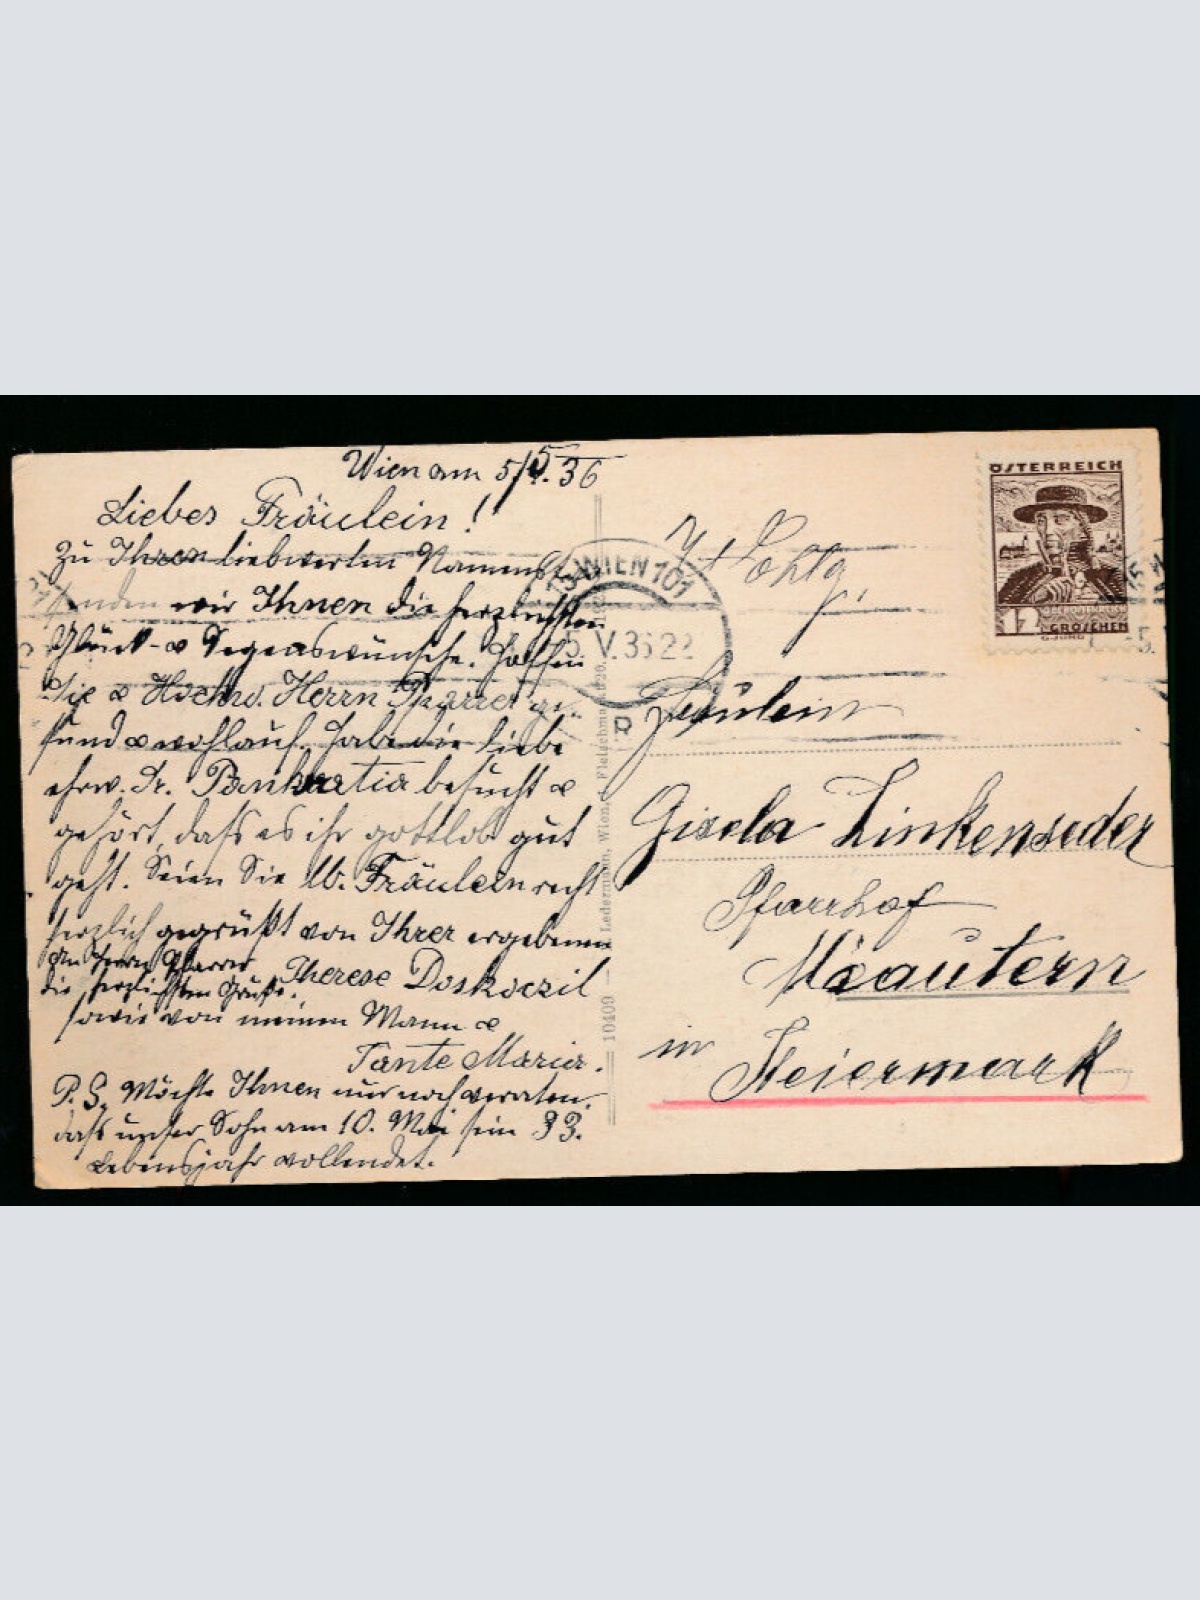 Wien am 5/5. 36
Liebes Fräulein!
Zu Ihren liebwerten Namens
senden wir Ihnen die herzlichsten
Glück- & Segenswünsche. Hoffen
Sie & Hochw. Herrn Pfarrer ge-
sund & wohlauf. Habe die liebe
ehrw. Sr. Pankratia besucht &
gehört, dass es ihr gottlob gut
geht. Seien Sie lb. Fräulein recht
herzlich gegrüßt von Ihrer ergebenen
Therese Doskoczil
An Herrn Pfarrer
die herzlichsten Grüße.
sowie von meinem Mann &
Tante Marie.
P.S. Möchte Ihnen nur noch verraten,
dass unser Sohn am 10. Mai sein 33.
Lebensjahr vollendet.
10409 — Ledermann, Wien, I. Fleischma
WIEN 101
5.V.36 22
ÖSTERREICH
12
OBERÖSTERREICH
GROSCHEN
Fräulein
Gisela Linkenseder
Pfarrhof
Mautern
in
Steiermark